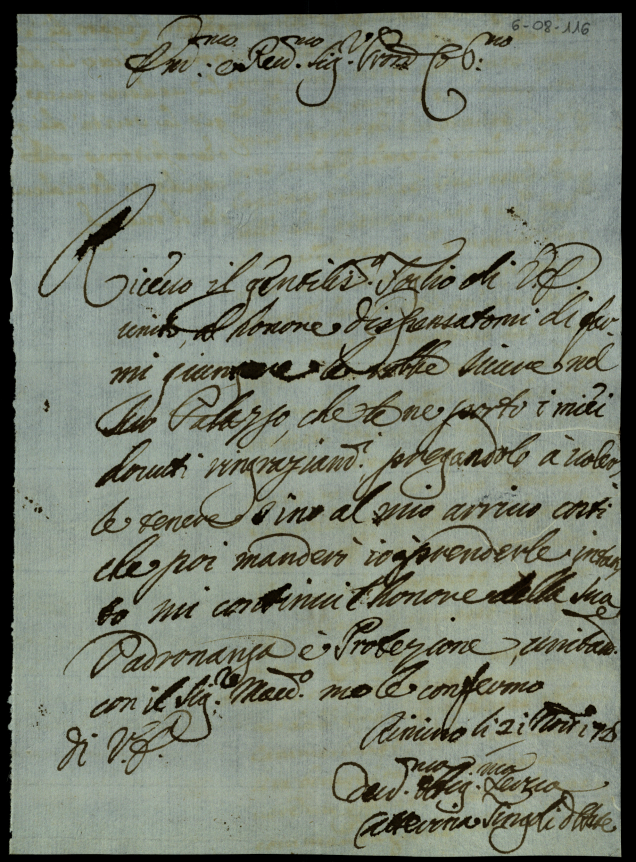 6-08-116
Ill.mo e Rev.mo Sig.re Pron Col.mo
Riceuo il gentilis.o Foglio di V.S.
unito al honore dispensatomi di far-
mi giungere le robbe sicure nel
suo Palazzo, che le ne porto i miei
douuti ringraziam.ti pregandolo à uoler
le tenere sino al mio arriuo costi
che poi manderò io à prenderle intan
to mi continui l'honore della Sua
Padronanza è Protezione, unitam.te
con il Sig.re
me le confermo
di V.S.
Rimino li 21
Deu.ma Oblig.ma Serua
Catterina